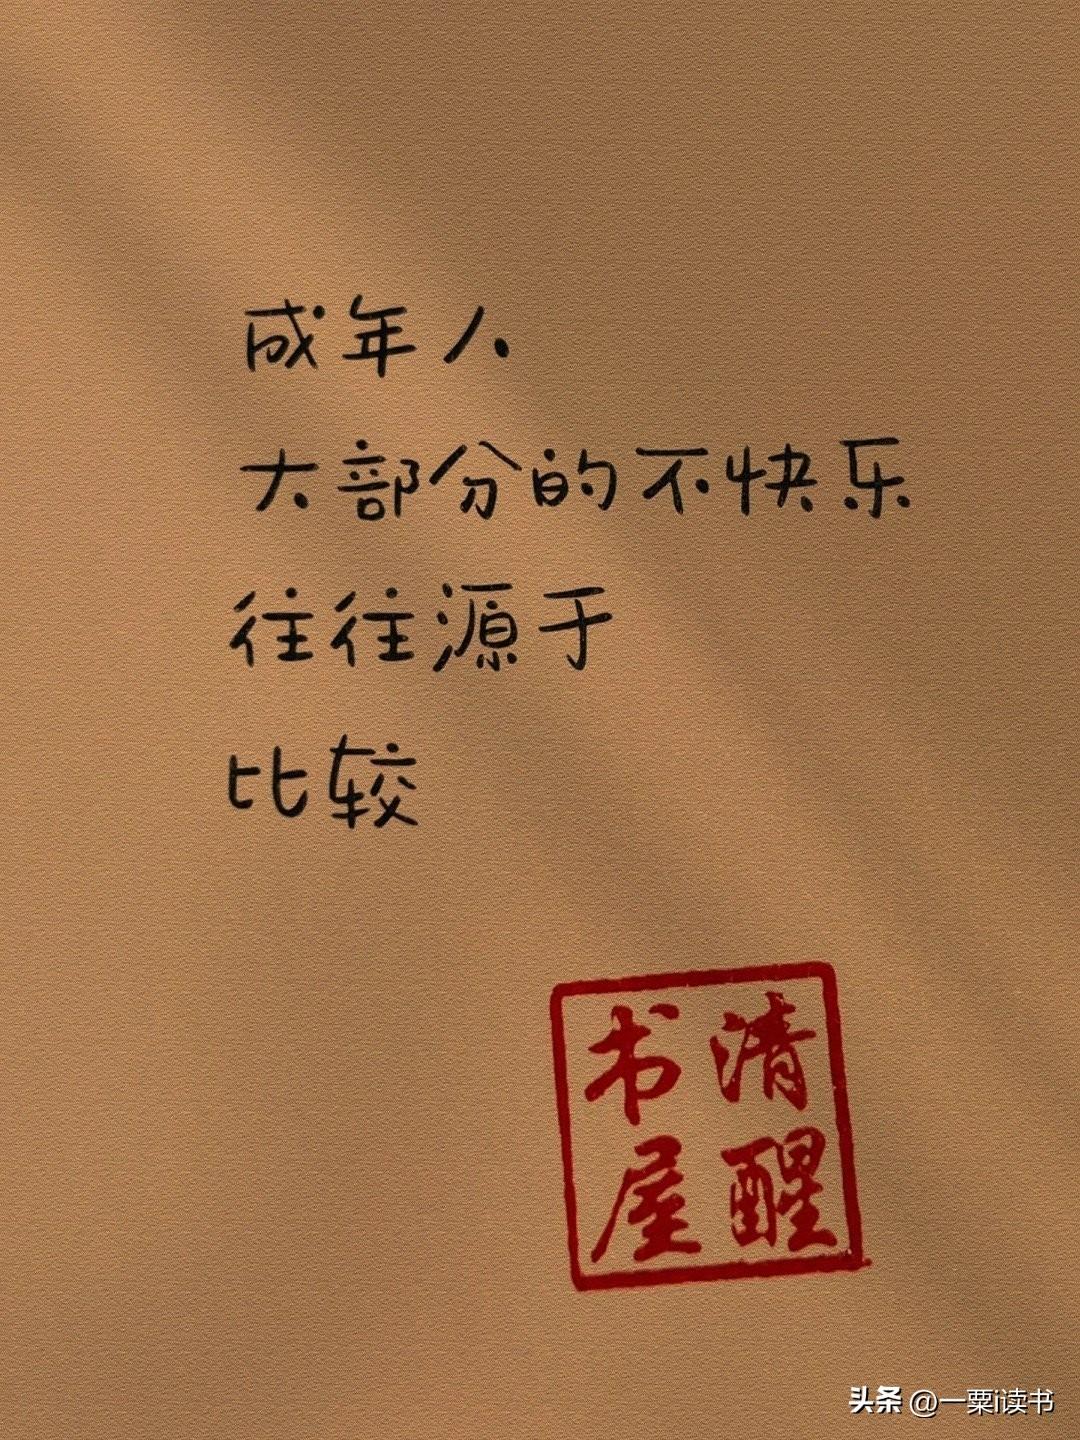 成年人
大部分的不快乐
往往源于
比较
清醒
书屋
头条 @一粟i读书